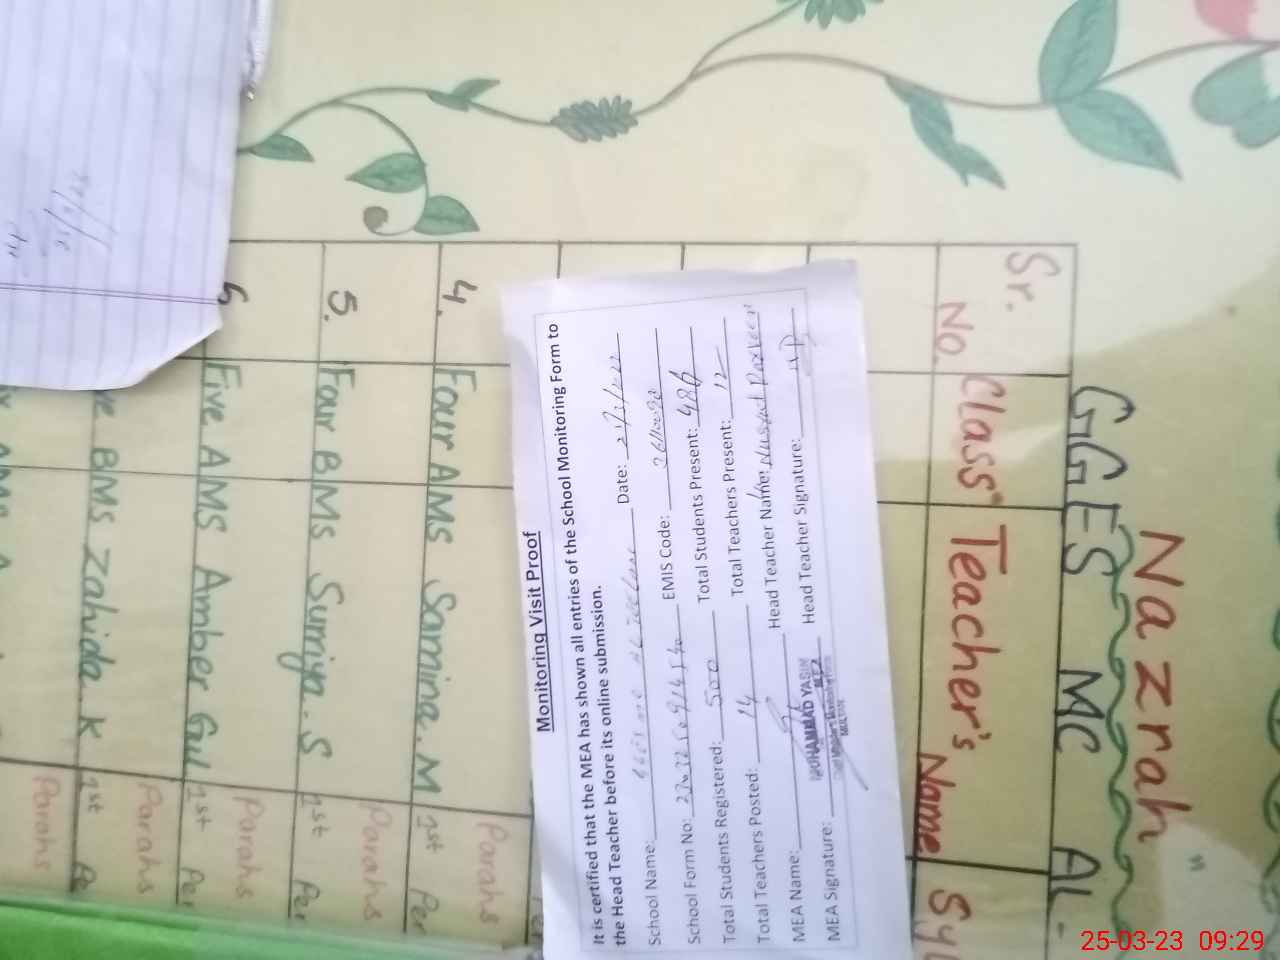 Monitoring Visit Proof
It is certified that the MEA has shown all entries of the School Monitoring Form to
the Head Teacher before its online submission.
School Name: Date:
School Form No: EMIS Code:
Total Students Registered: 500 Total Students Present: 486
Total Teachers Posted: 14 Total Teachers Present: 12
MEA Name: Head Teacher Name: Parveen
MEA Signature: Head Teacher Signature:
MUHAMMAD YASIN
MULTAN
Nazrah
GGES MC AL-
Sr. No. Class Teacher's Name Syl
Parahs
4. Four A MS Samina. M 1st Per
Parahs
5. Four B MS Surriya. S 1st Per
Parahs
6 Five A MS Amber Gul 1st Per
Parahs
ve B MS Zahida. K 1st Pe
Parahs
25-03-23 09:29